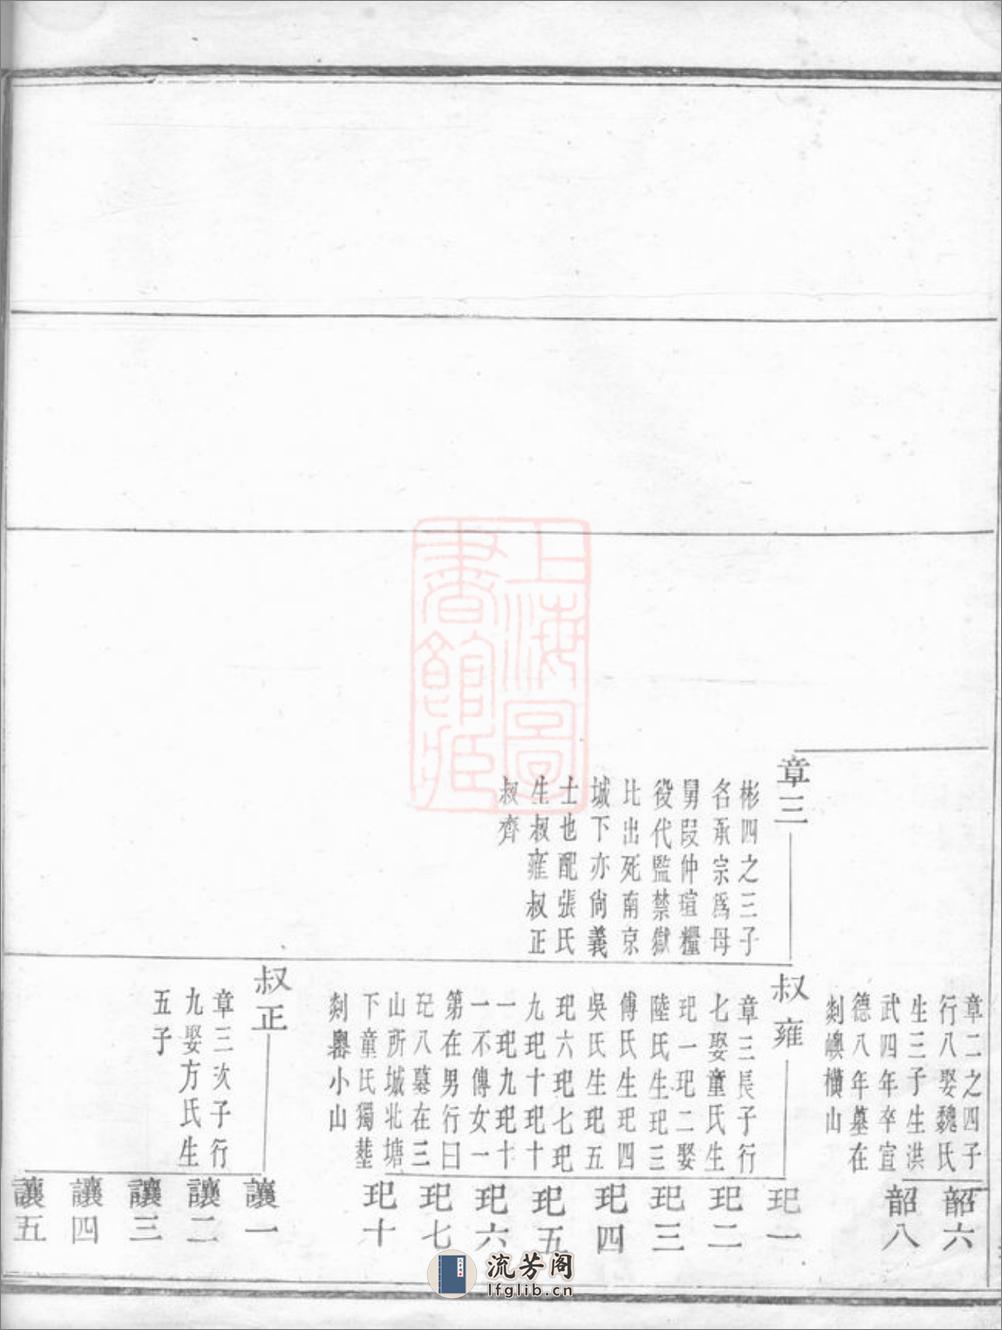 章二之四子
行八娶魏氏
生三子生洪
武四年卒宣
德八年墓在
剡嶴橫山
韶六
韶八
章三
彬四之三子
名承宗爲母
舅段仲瑄糧
役代監禁獄
比出死南京
城下亦尚義
士也配張氏
生叔雍叔正
叔齊
叔雍
章三長子行
七娶童氏生
玘一玘二娶
陸氏生玘三
傅氏生玘四
吳氏生玘五
玘六玘七玘
九玘十玘十
一玘九玘十
一不傳女一
第在男行曰
玘八墓在三
山所城北塘
下童氏獨塟
剡嶴小山
玘一
玘二
玘三
玘四
玘五
玘六
玘七
玘十
叔正
章三次子行
九娶方氏生
五子
讓一
讓二
讓三
讓四
讓五
上海圖
書館藏
流芳阁
lfglib.cn